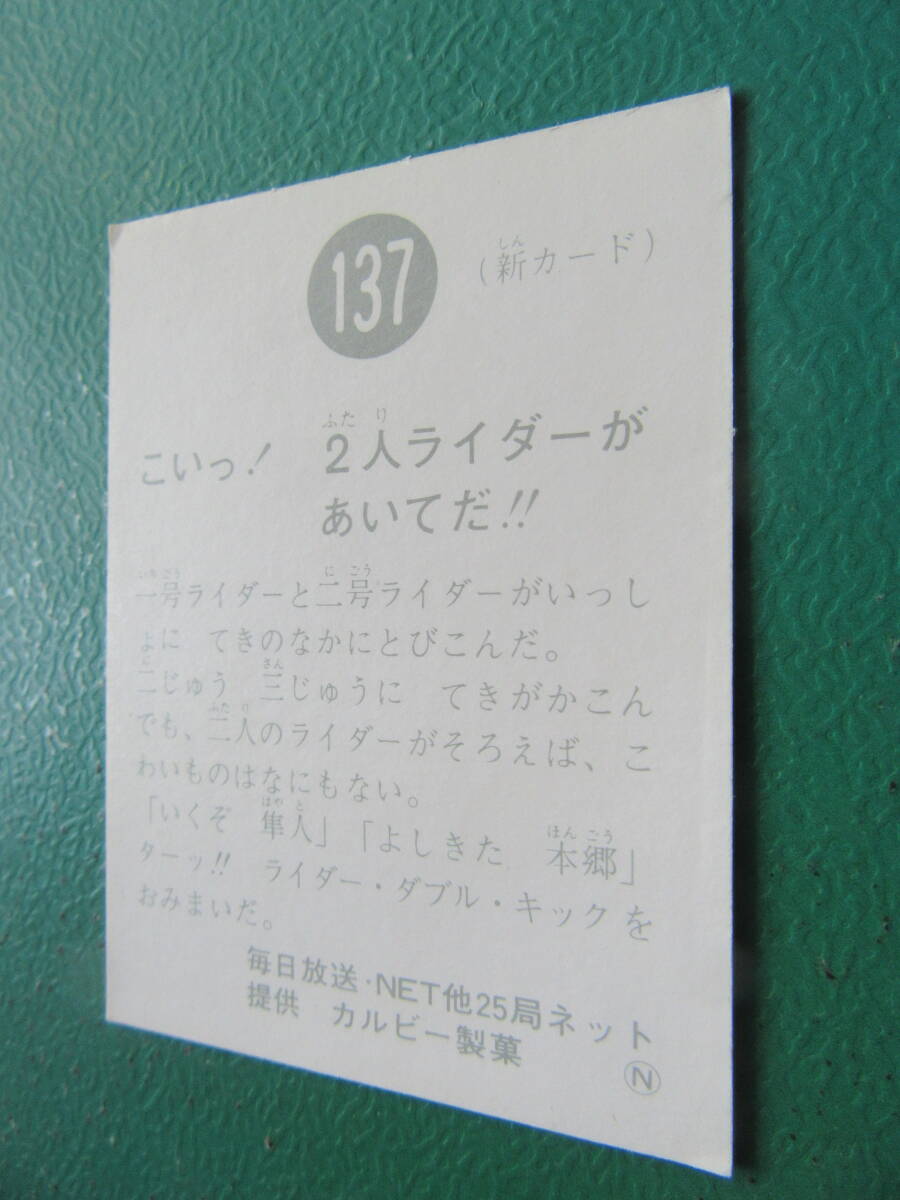 137
(新カード)
しん
こいっ! 2人ライダーが
ふたり
あいてだ!!
一号ライダーと二号ライダーがいっし
いちごう にごう
ょに てきのなかにとびこんだ。
二じゅう 三じゅうに てきがかこん
に さん
でも、二人のライダーがそろえば、こ
ふたり
わいものはなにもない。
「いくぞ 隼人」「よしきた 本郷」
はやと ほんごう
ターッ!! ライダー・ダブル・キックを
おみまいだ。
毎日放送・NET他25局ネット
提供 カルビー製菓
N